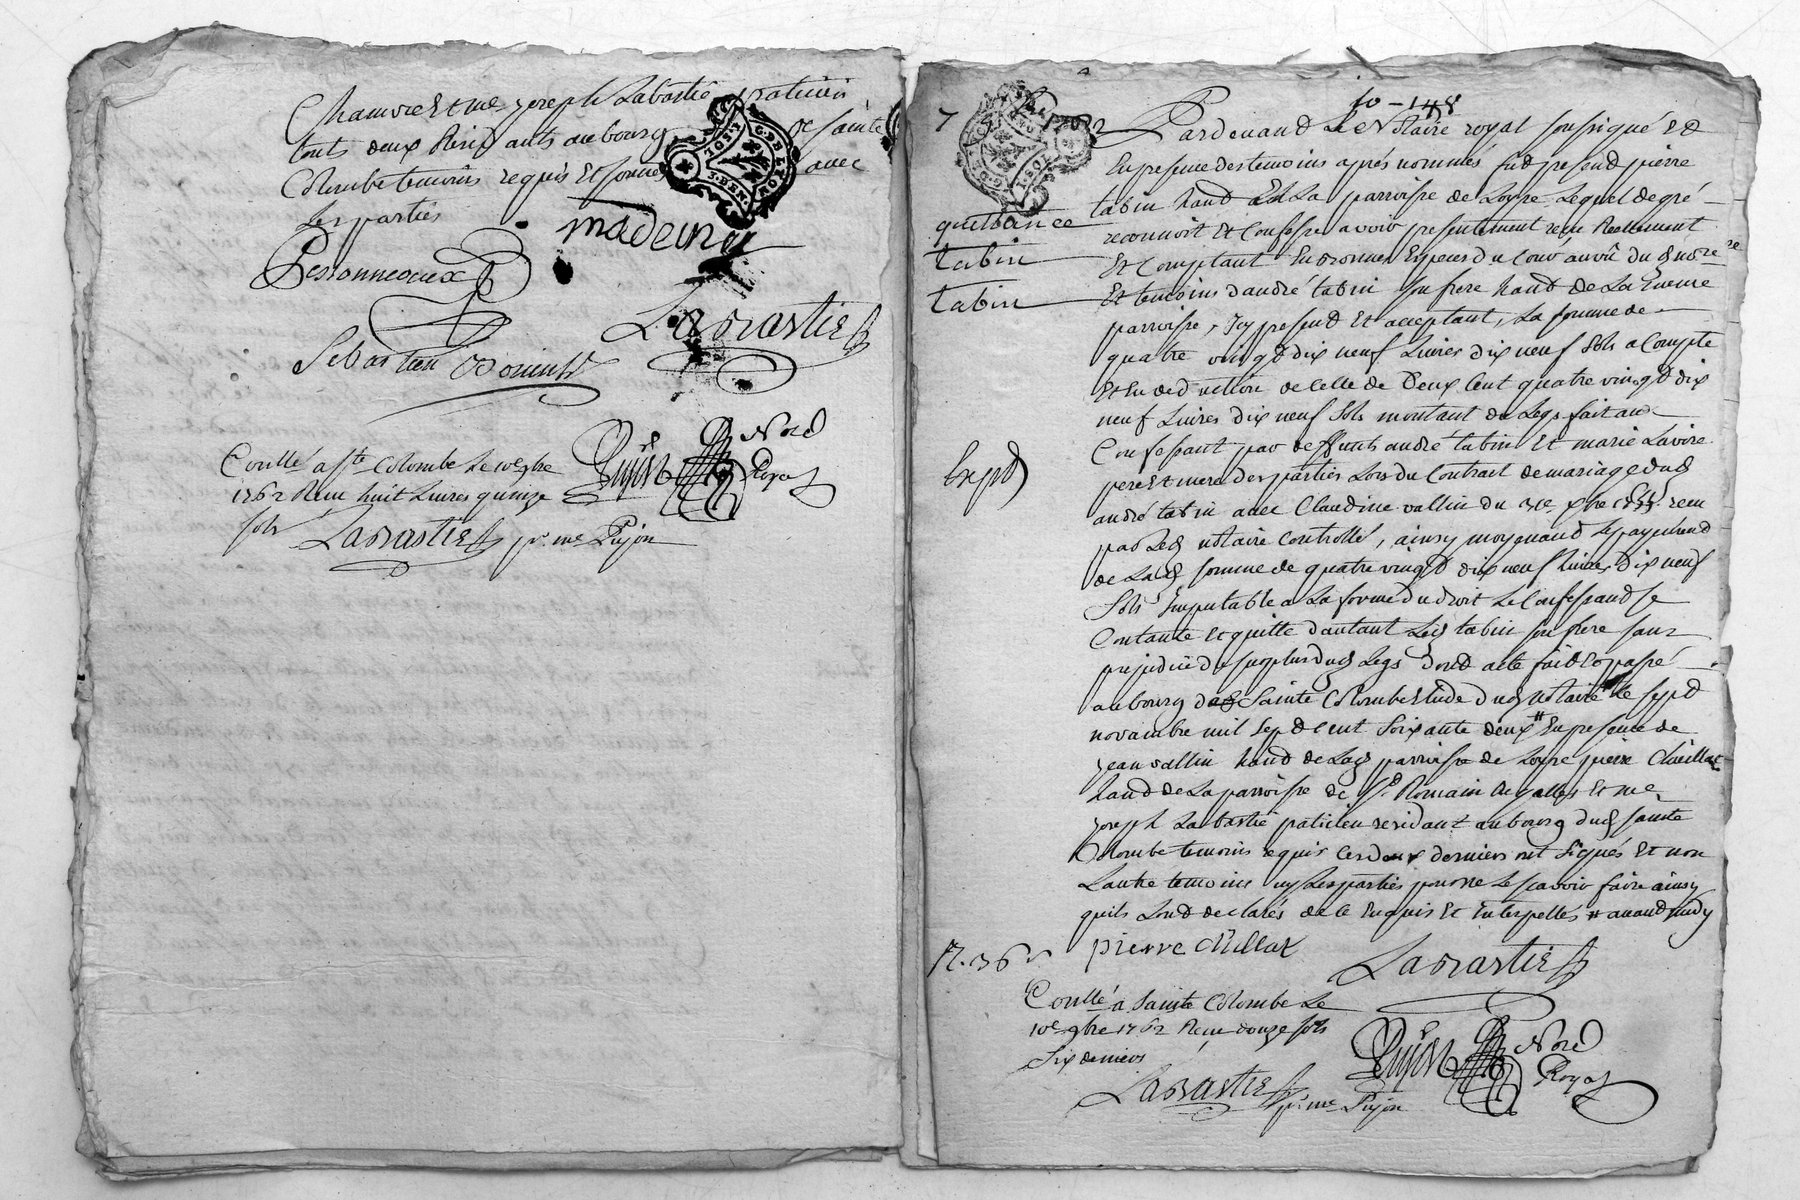 Chamoret me joseph Labastie praticien
touts deux Residants au bourg de Sainte
Colombe temoins requis Et Signés avec
Les parties
madeinier
Pessonneaux
Labrastie
Sebastien Doninch
Conllé a Ste Colombe Le 10e 9bre
1762 Reçu huit Livres quinze
sols
Labrastie pr. me Pujon
Pujon Nore
Royal
fo - 148
7
Pardevand Le Notaire royal soussigné Et
En presence des temoins aprés nommés fud presend pierre
tabin hand de La parroisse de Loyre Lequel de gré
reconnoit Et Confesse avoir presentement reçu Reellement
Et Comptant En bonnes Especes du Cours au vû dud notre
Et temoins d'andré tabin son frere hand de La meme
parroisse, Icy presend Et acceptant, La somme de
quatre vingd dix neuf Livres dix neuf sols a Compte
Et En deduction de Celle de Deux Cent quatre vingd dix
neuf Livres dix neuf sols montant du Legs fait au
Confessant par deffunts andré tabin Et marie Lavoire
pere Et mere des parties Lors du Contrait de mariage dud
andré tabin avec Claudine vallin du xbre reçu
par Led notaire Controllé, ainsy moyenand Le payement
de Lad somme de quatre vingd dix neuf Livres dix neuf
Sols Imputable a La forme du droit Le Confessand se
Contante Et quitte d'autant Led tabin son frere sans
prejudice du surplus dud Legs dond acte fait Et passé
au bourg dud Sainte Colombe Etude dud notaire Le sepd
novambre mil sepd cent soixante deux # En presence de
jean vallin hand de Lad parroisse de Loyre pierre Chillat
hand de La parroisse de St Romain En galles Et me
joseph Labastie paticien residant au bourg dud sainte
Colombe temoins requis Ces deux derniers ont signés Et non
L'autre temoins ny Les parties pour ne Le sçavoir faire ainsy
quils L'ond declarés de ce Enquis Et Interpellés # avand midy
quittance
tabin
tabin
Expd
pierre chillat
Labrastie
Conllé á Sainte Colombe Le
10e 9bre 1762 Reçu douze sols
Six deniers
Labrastie pr. me Pujon
Pujon Nore
Royal